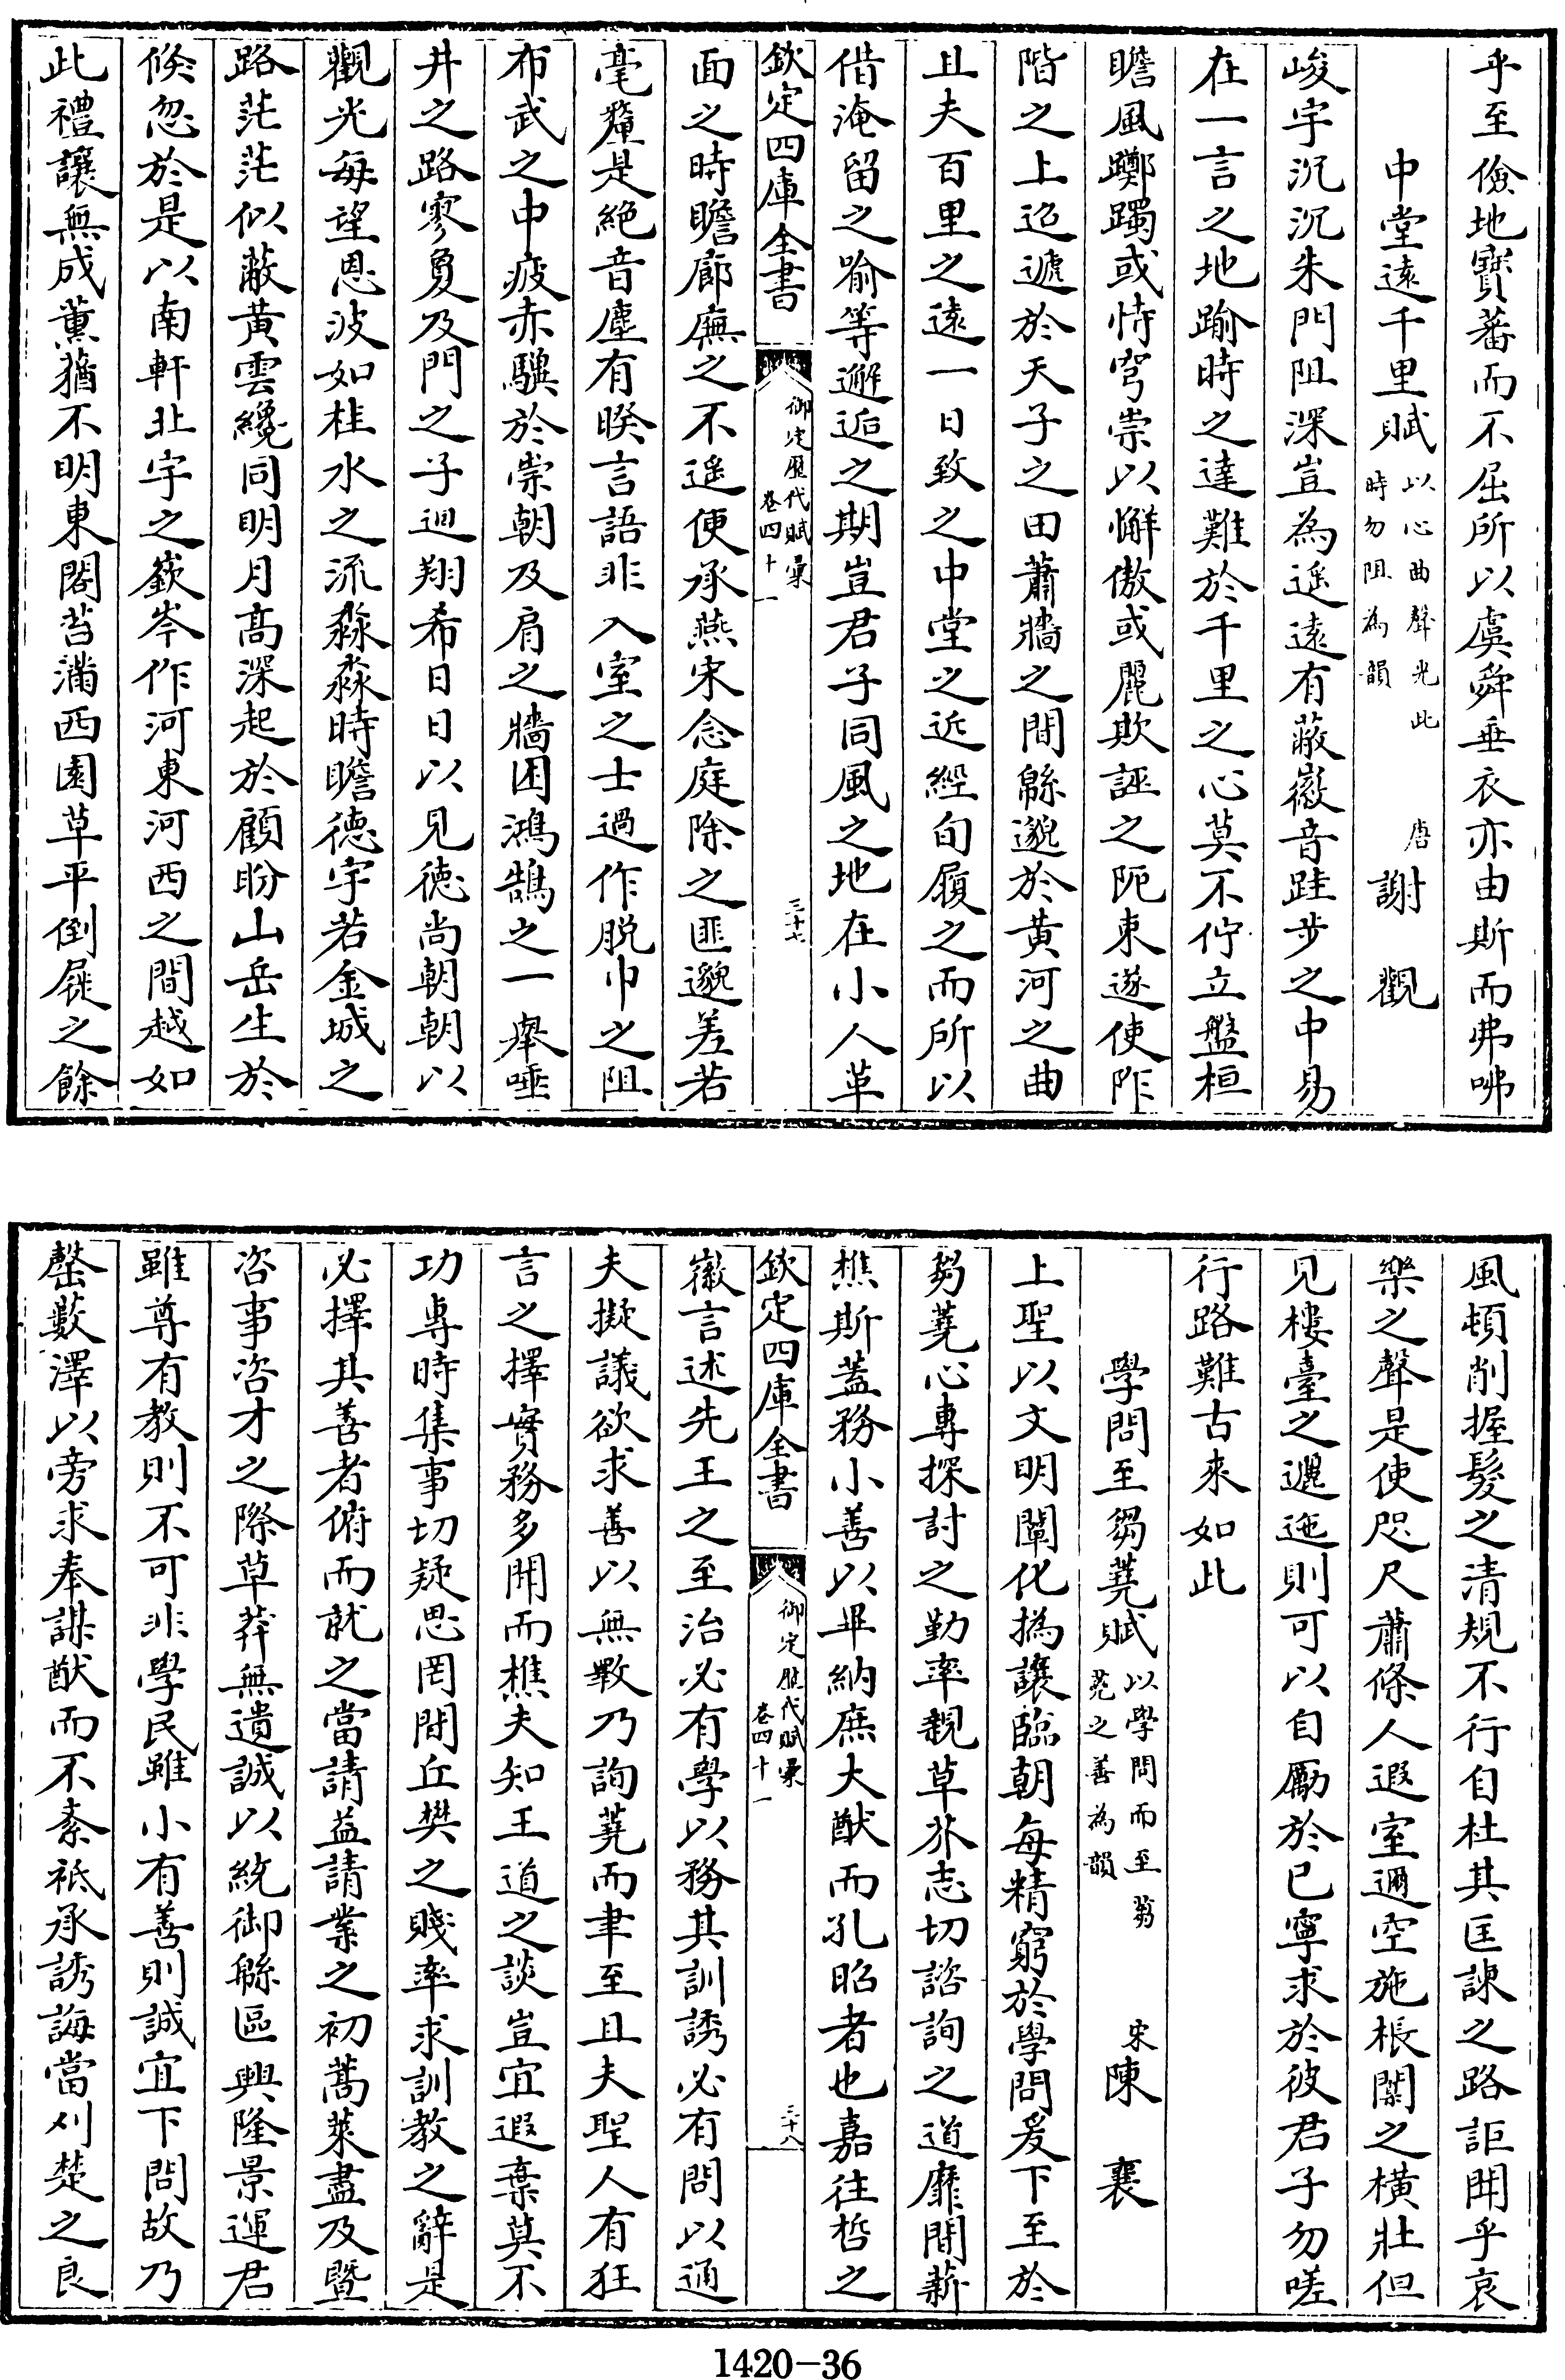 乎至儉地寶蕃而不屈所以虞舜垂衣亦由斯而弗咈
中堂遠千里賦以心曲聲光此時勿阻為韻 唐謝觀
峻宇沉沉朱門阻深豈為遥遠有蔽徽音跬步之中易
在一言之地踰時之達難於千里之心莫不佇立盤桓
瞻風躑躅或恃穹崇以懈傲或麗欺誣之阨束遂使阼
階之上迢遞於天子之田蕭牆之間緜邈於黄河之曲
且夫百里之遠一日致之中堂之近經旬履之而所以
借淹留之喻等邂逅之期豈君子同風之地在小人革
欽定四庫全書 御定歷代賦彙卷四十一 三十七
面之時瞻廊廡之不遥便承燕宋念庭除之匪邈差若
毫釐是絶音塵有暌言語非入室之士過作脱巾之阻
布武之中疲赤驥於崇朝及肩之牆困鴻鵠之一舉唾
井之路寥夐及門之子迴翔希日日以見徳尚朝朝以
觀光每望恩波如桂水之流淼淼時瞻徳宇若金城之
路茫茫似蔽黄雲纔同明月髙深起於顧盼山岳生於
倐忽於是以南軒北宇之嶔岑作河東河西之間越如
此禮讓無成薰蕕不明東閣苔滿西園草平倒屣之餘
風頓削握髮之清規不行自杜其匡諌之路詎聞乎哀
樂之聲是使咫尺蕭條人遐室邇空施棖闑之横壯但
見樓臺之邐迤則可以自勵於已寧求於彼君子勿嗟
行路難古來如此
學問至芻蕘賦以學問而至芻蕘之善為韻 宋陳襄
上聖以文明闡化撝讓臨朝每精窮於學問爰下至於
芻蕘心專探討之勤率親草芥志切諮詢之道靡間薪
樵斯蓋務小善以畢納庶大猷而孔昭者也嘉往哲之
欽定四庫全書 御定歷代賦彙卷四十一 三十八
徽言述先王之至治必有學以務其訓誘必有問以通
夫擬議欲求善以無斁乃詢蕘而聿至且夫聖人有狂
言之擇實務多聞而樵夫知王道之談豈宜遐棄莫不
功専時集事切疑思罔間丘樊之賤率求訓教之辭是
必擇其善者俯而就之當請益請業之初蒿萊盡及暨
咨事咨才之際草莽無遺誠以統御緜區興隆景運君
雖尊有教則不可非學民雖小有善則誠宜下問故乃
罄藪澤以旁求奉謀猷而不紊祗承誘誨當刈楚之良
1420-36